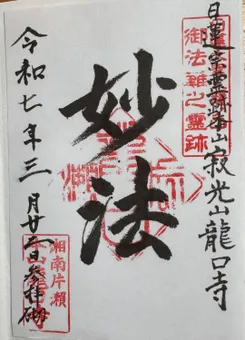 日蓮宗霊跡本山寂光山龍口寺
御法難之霊跡
妙法
令和七年三月廿二日参拝
湘南片瀬